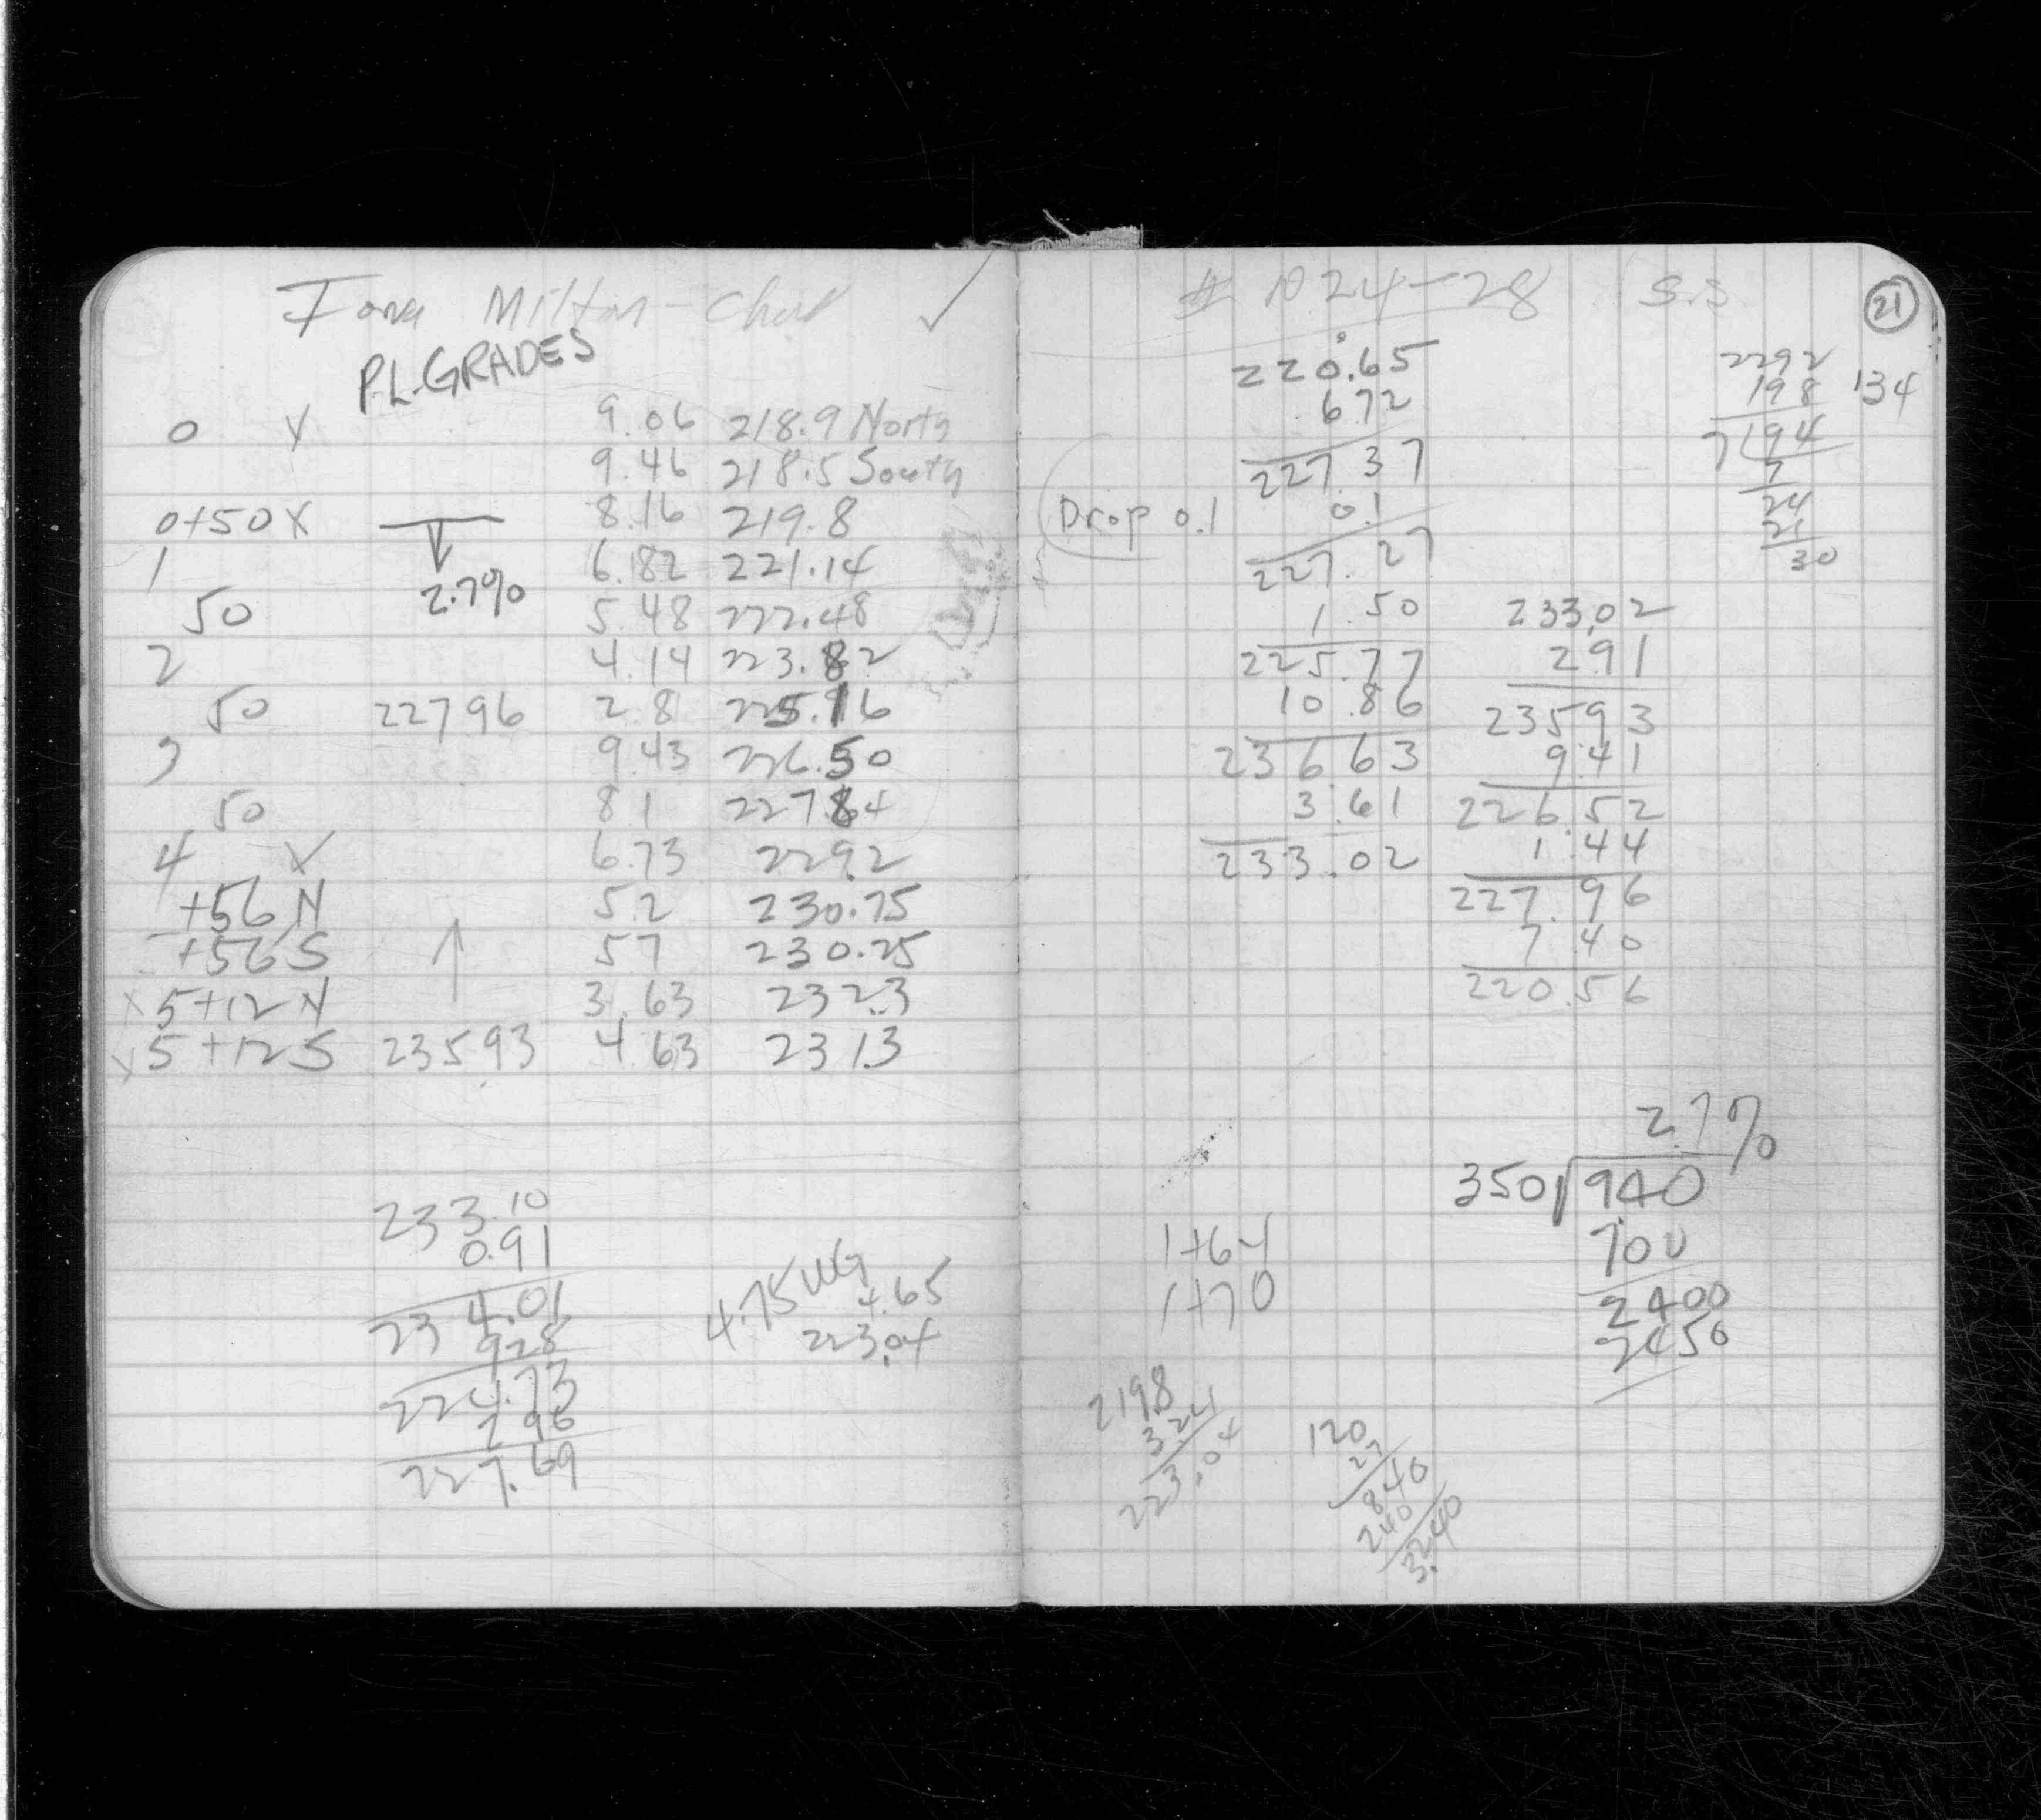 Iona Milton - Chul ✓
P.L. GRADES
0 X 9.06 218.9 North
9.46 218.5 South
0+50 X 8.16 219.8
1 6.82 221.14
50 2.7% 5.48 222.48
2 4.14 223.82
50 22796 2.8 225.16
3 9.43 226.50
50 8.1 227.84
4 X 6.73 229.2
+56 N 5.2 230.75
+56 S 5.7 230.25
X 5+12 N 3.63 232.3
X 5+12 S 23593 4.63 231.3
233.10
0.91
234.01
9.28
224.73
2.96
227.69
4.75 UG
4.65
223.04
# 1024-28 S.S
21
220.65
6.72
227.37
Drop 0.1 0.1
227.27
1.50
225.77
10.86
236.63
3.61
233.02
2292
198 134
7 194
7
24
21
30
233.02
2.91
235.93
9.41
226.52
1.44
227.96
7.40
220.56
2.7%
350 940
700
2400
2450
1+64
1+70
219.8
3.24
223.04
120
27
840
240
3.240